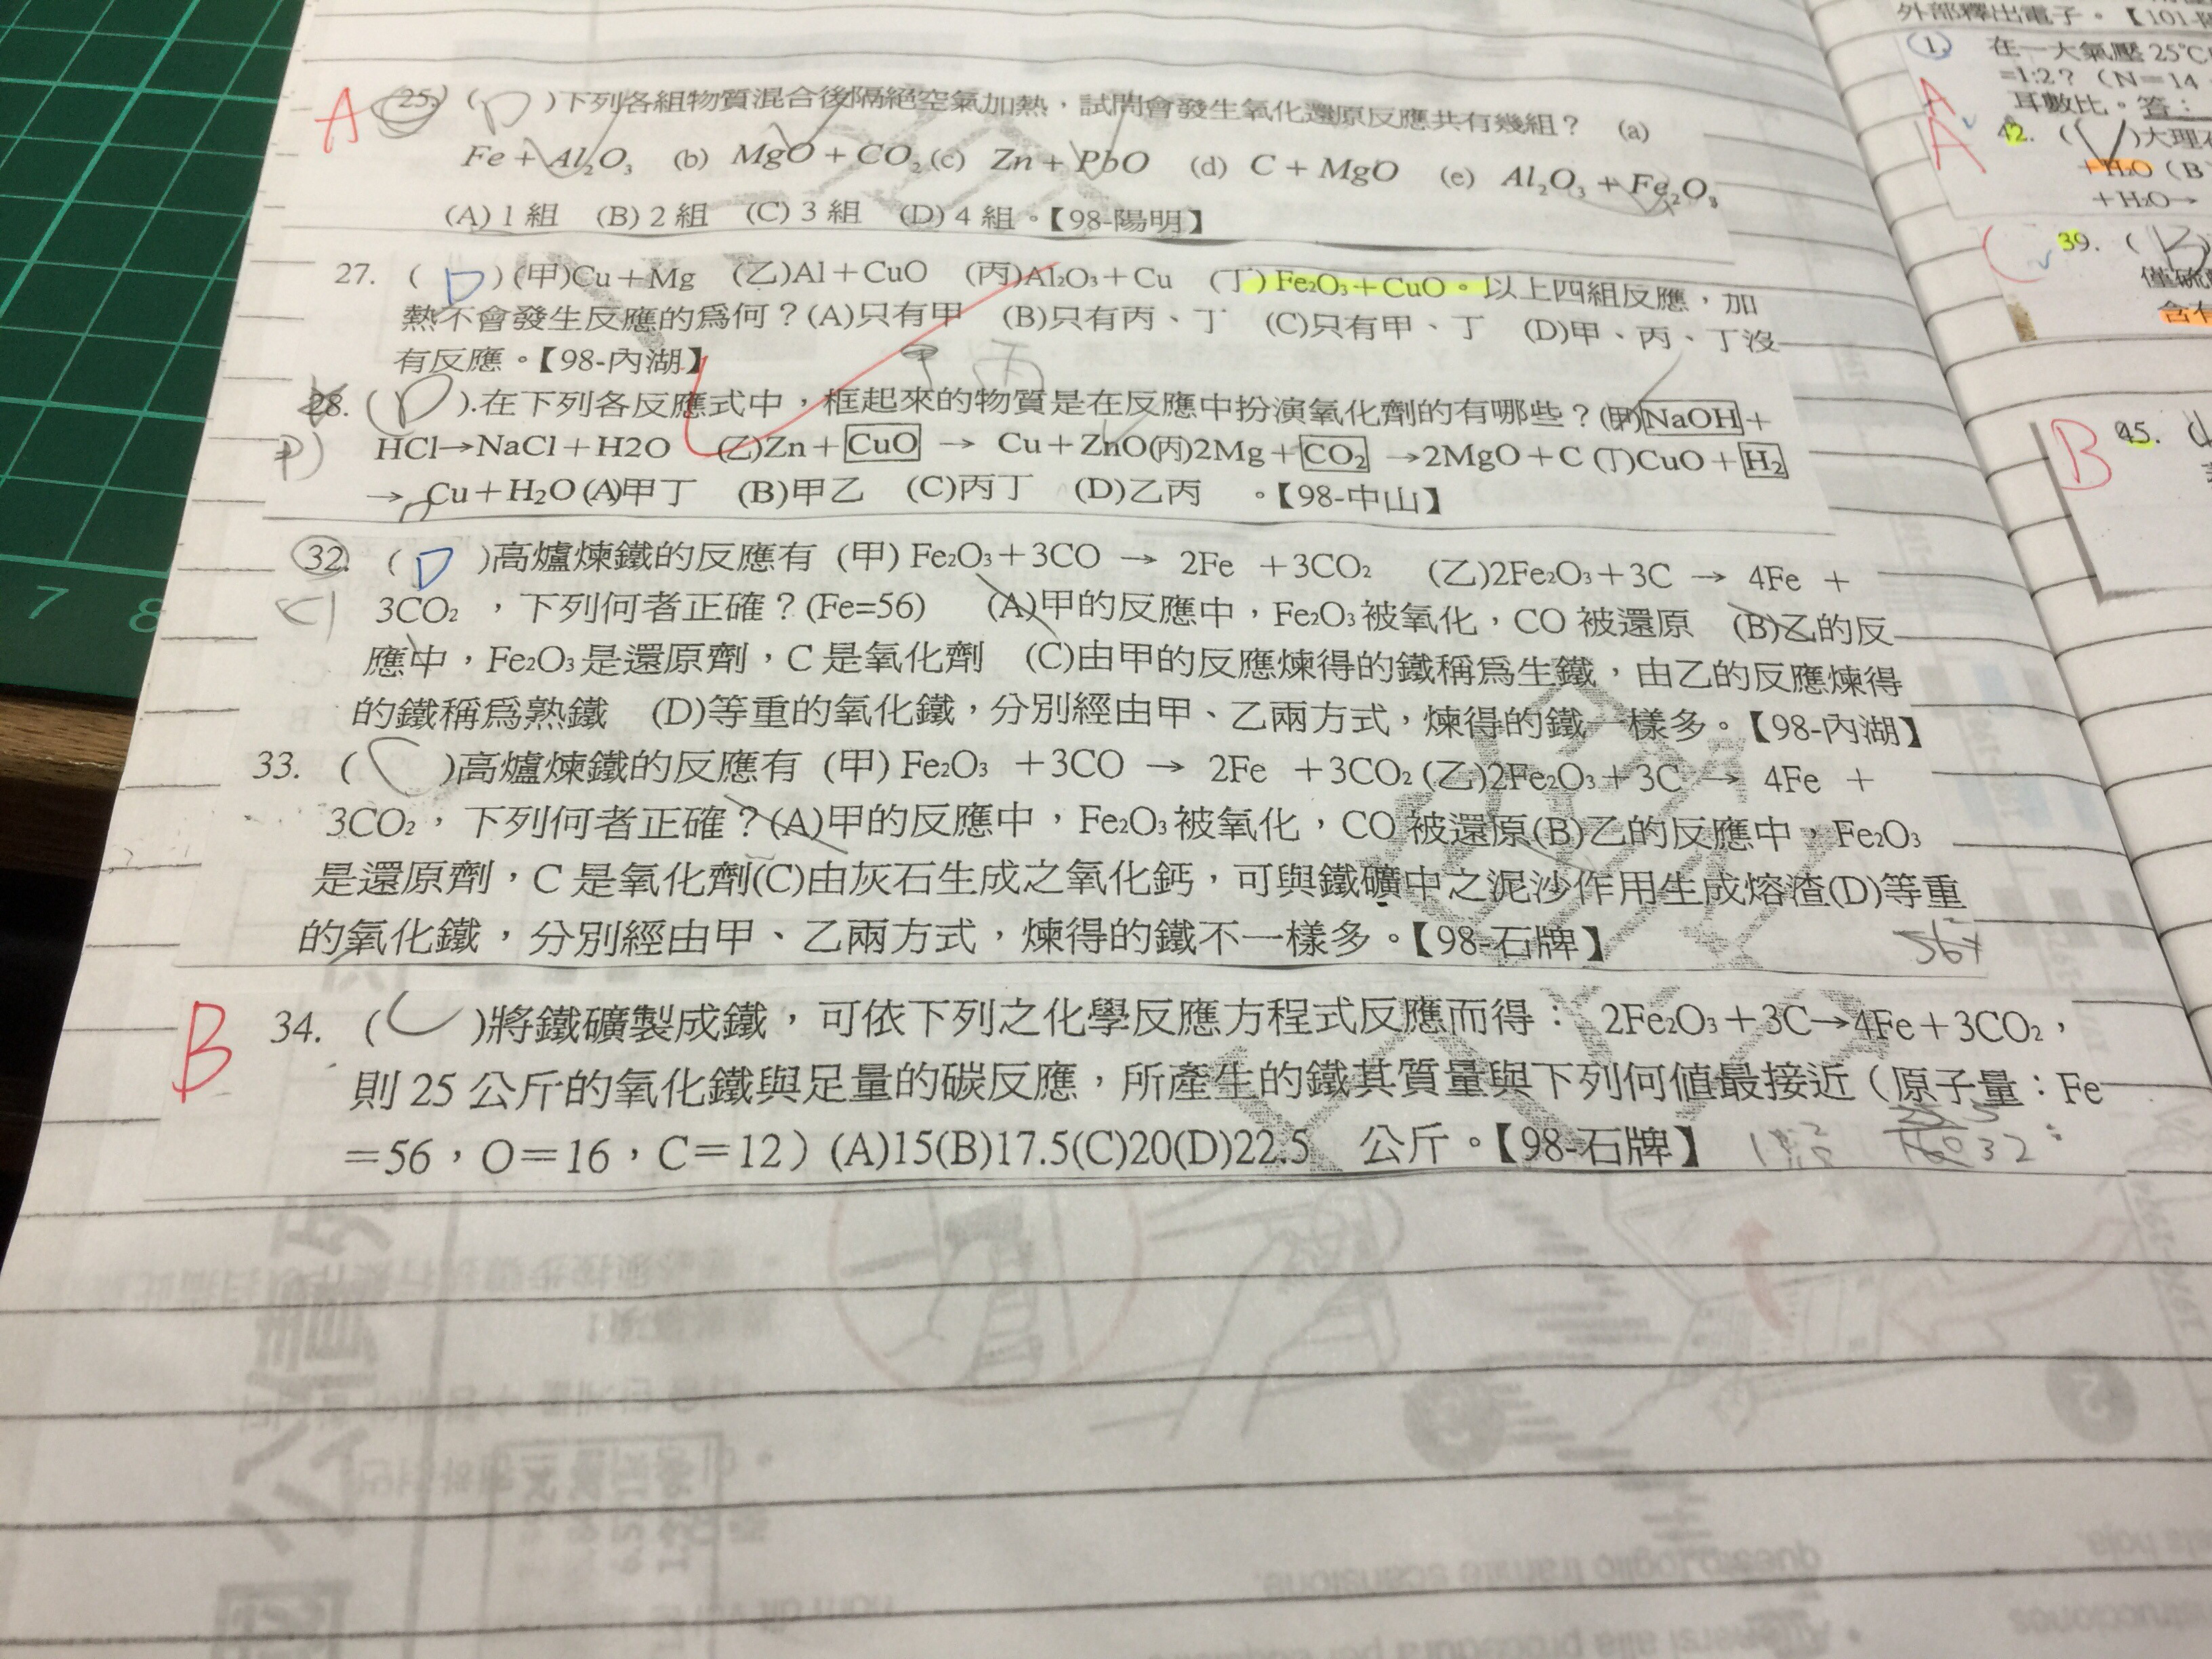 A 25. ( D )下列各組物質混合後隔絕空氣加熱，試問會發生氧化還原反應共有幾組？ (a)
Fe + Al₂O₃ (b) MgO + CO₂ (c) Zn + PbO (d) C + MgO (e) Al₂O₃ + Fe₂O₃
(A) 1 組 (B) 2 組 (C) 3 組 (D) 4 組。【98-陽明】
27. ( D ) (甲)Cu＋Mg (乙)Al＋CuO (丙)Al₂O₃＋Cu (丁) Fe₂O₃＋CuO。以上四組反應，加
熱不會發生反應的為何？(A)只有甲 (B)只有丙、丁 (C)只有甲、丁 (D)甲、丙、丁沒
有反應。【98-內湖】
甲 丙
28. ( D ).在下列各反應式中，框起來的物質是在反應中扮演氧化劑的有哪些？(甲)NaOH＋
HCl→NaCl＋H2O (乙)Zn＋CuO → Cu＋ZnO(丙)2Mg＋CO₂ →2MgO＋C (丁)CuO＋H₂
→ Cu＋H₂O (A)甲丁 (B)甲乙 (C)丙丁 (D)乙丙 。【98-中山】
32. ( D )高爐煉鐵的反應有 (甲) Fe₂O₃＋3CO → 2Fe ＋3CO₂ (乙)2Fe₂O₃＋3C → 4Fe ＋
3CO₂ ，下列何者正確？(Fe=56) (A)甲的反應中，Fe₂O₃被氧化，CO 被還原 (B)乙的反
應中，Fe₂O₃是還原劑，C 是氧化劑 (C)由甲的反應煉得的鐵稱為生鐵，由乙的反應煉得
的鐵稱為熟鐵 (D)等重的氧化鐵，分別經由甲、乙兩方式，煉得的鐵一樣多。【98-內湖】
33. ( C )高爐煉鐵的反應有 (甲) Fe₂O₃ ＋3CO → 2Fe ＋3CO₂ (乙)2Fe₂O₃＋3C → 4Fe ＋
3CO₂，下列何者正確？(A)甲的反應中，Fe₂O₃被氧化，CO 被還原(B)乙的反應中，Fe₂O₃
是還原劑，C 是氧化劑(C)由灰石生成之氧化鈣，可與鐵礦中之泥沙作用生成熔渣(D)等重
的氧化鐵，分別經由甲、乙兩方式，煉得的鐵不一樣多。【98-石牌】
B 34. ( C )將鐵礦製成鐵，可依下列之化學反應方程式反應而得： 2Fe₂O₃＋3C→4Fe＋3CO₂，
則 25 公斤的氧化鐵與足量的碳反應，所產生的鐵其質量與下列何值最接近（原子量：Fe
＝56，O＝16，C＝12）(A)15(B)17.5(C)20(D)22.5 公斤。【98-石牌】
外部釋出電子。【101-
1. 在一大氣壓 25℃
=1:2？（N＝14
耳數比。答：
A
A 42. ( )大理
＋H₂O（B
＋H₂O→
39. ( B
僅硫
含有
B 45.
7 8